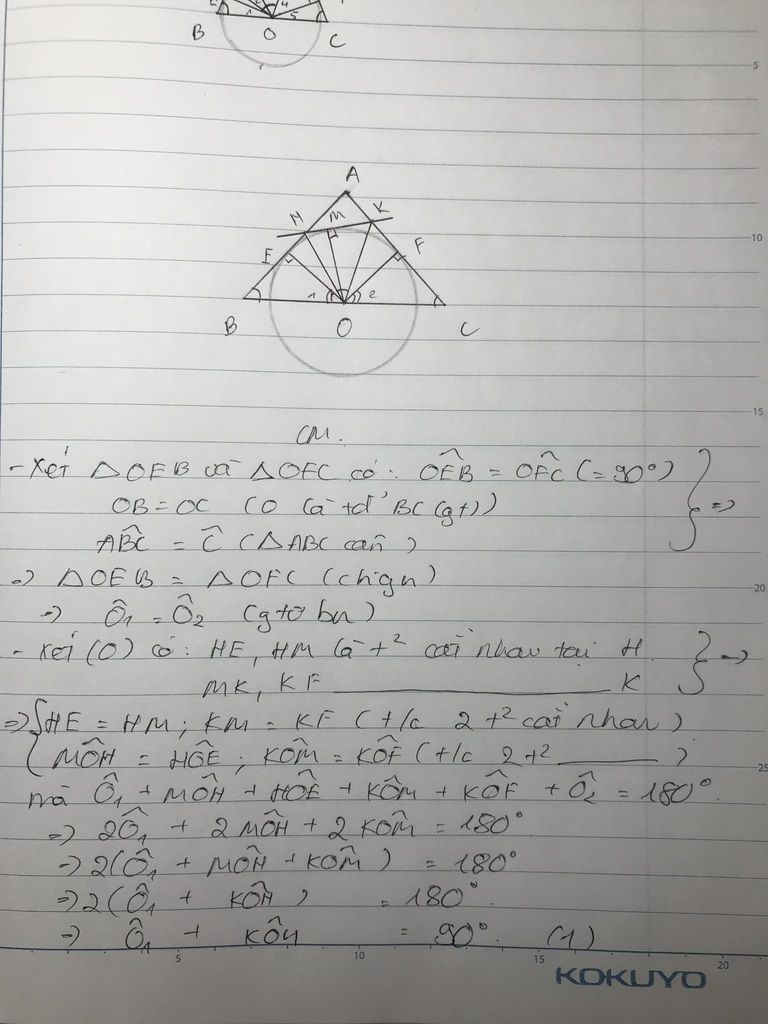 B O C
A
H M K
E F
1 2
B O C
CM.
- Xét △OEB và △OFC có: OÊB = OF̂C (= 90°)
OB = OC (O là tđ' BC (gt))
AB̂C = Ĉ (△ABC cân)
=> △OEB = △OFC (ch.gn)
=> Ô1 = Ô2 (gtơ bn)
- Xét (O) có: HE, HM là t² cắt nhau tại H
MK, KF ________ K
=> HE = HM; KM = KF (t/c 2 t² cắt nhau)
MÔH = HÔE; KÔM = KÔF (t/c 2 t² ____ )
mà Ô1 + MÔH + HÔE + KÔM + KÔF + Ô2 = 180°
=> 2Ô1 + 2MÔH + 2KÔM = 180°
=> 2(Ô1 + MÔH + KÔM) = 180°
=> 2(Ô1 + KÔH) = 180°
=> Ô1 + KÔH = 90° (1)
5 10 15 20
KOKUYO
5
10
15
20
25